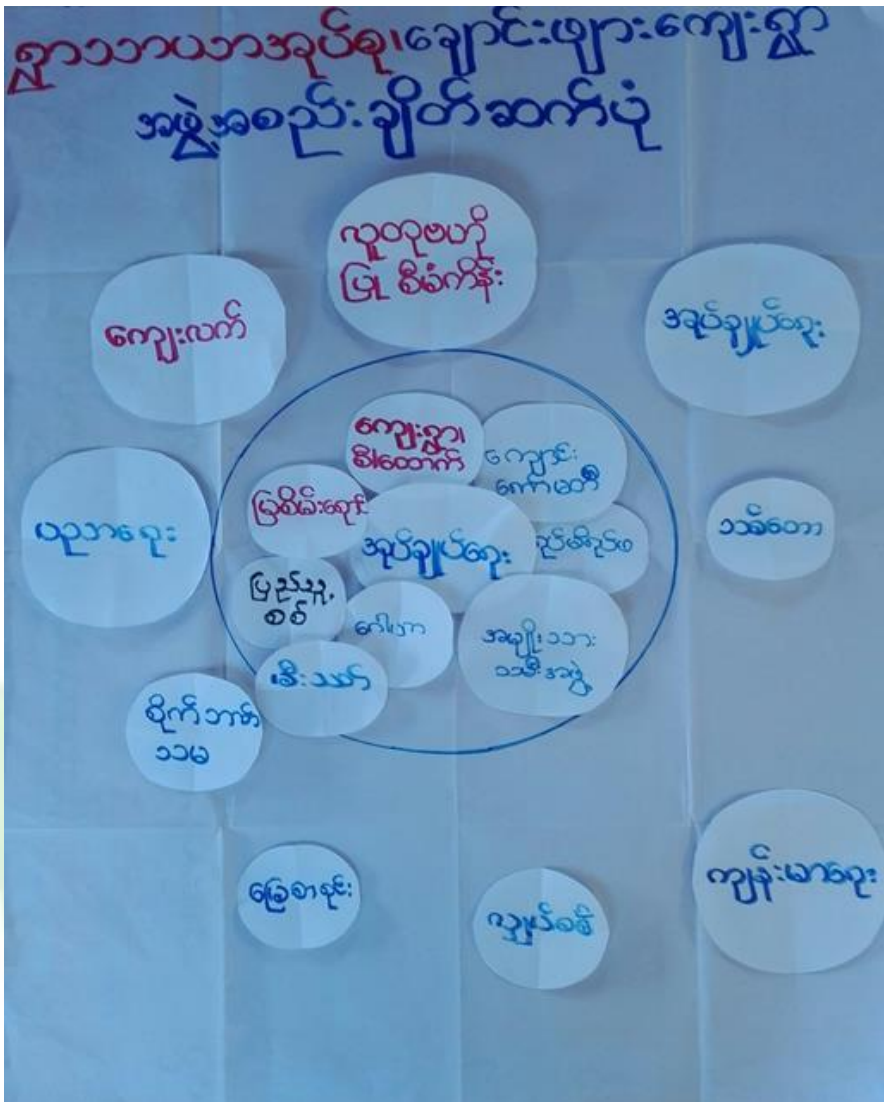 ရွာသာယာအုပ်စု၊ချောင်းဖျားကျေးရွာ
အဖွဲ့အစည်းချိတ်ဆက်ပုံ
လူထုဗဟို
ပြု စီမံကိန်း
ကျေးလက်
အုပ်ချုပ်ရေး
ကျေးရွာ၊
စီ၊ထောက်
ကျောင်း
ကော်မတီ
မြစိမ်းရောင်
အုပ်ချုပ်ရေး
ရပ်မိရပ်ဖ
ပညာရေး
သစ်တော
ပြည်သူ့
စစ်
ဂေါပက
အမျိုးသား
သမီးအဖွဲ့
မီးသတ်
စိုက်ဘဏ်
သမ
မြေစာရင်း
လျှပ်စစ်
ကျန်းမာရေး